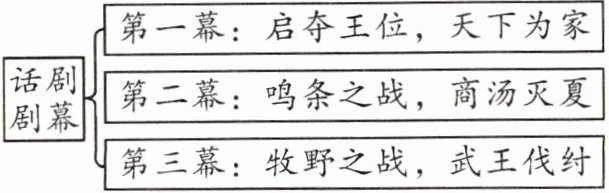 话剧
剧幕
第一幕：启夺王位，天下为家
第二幕：鸣条之战，商汤灭夏
第三幕：牧野之战，武王伐纣